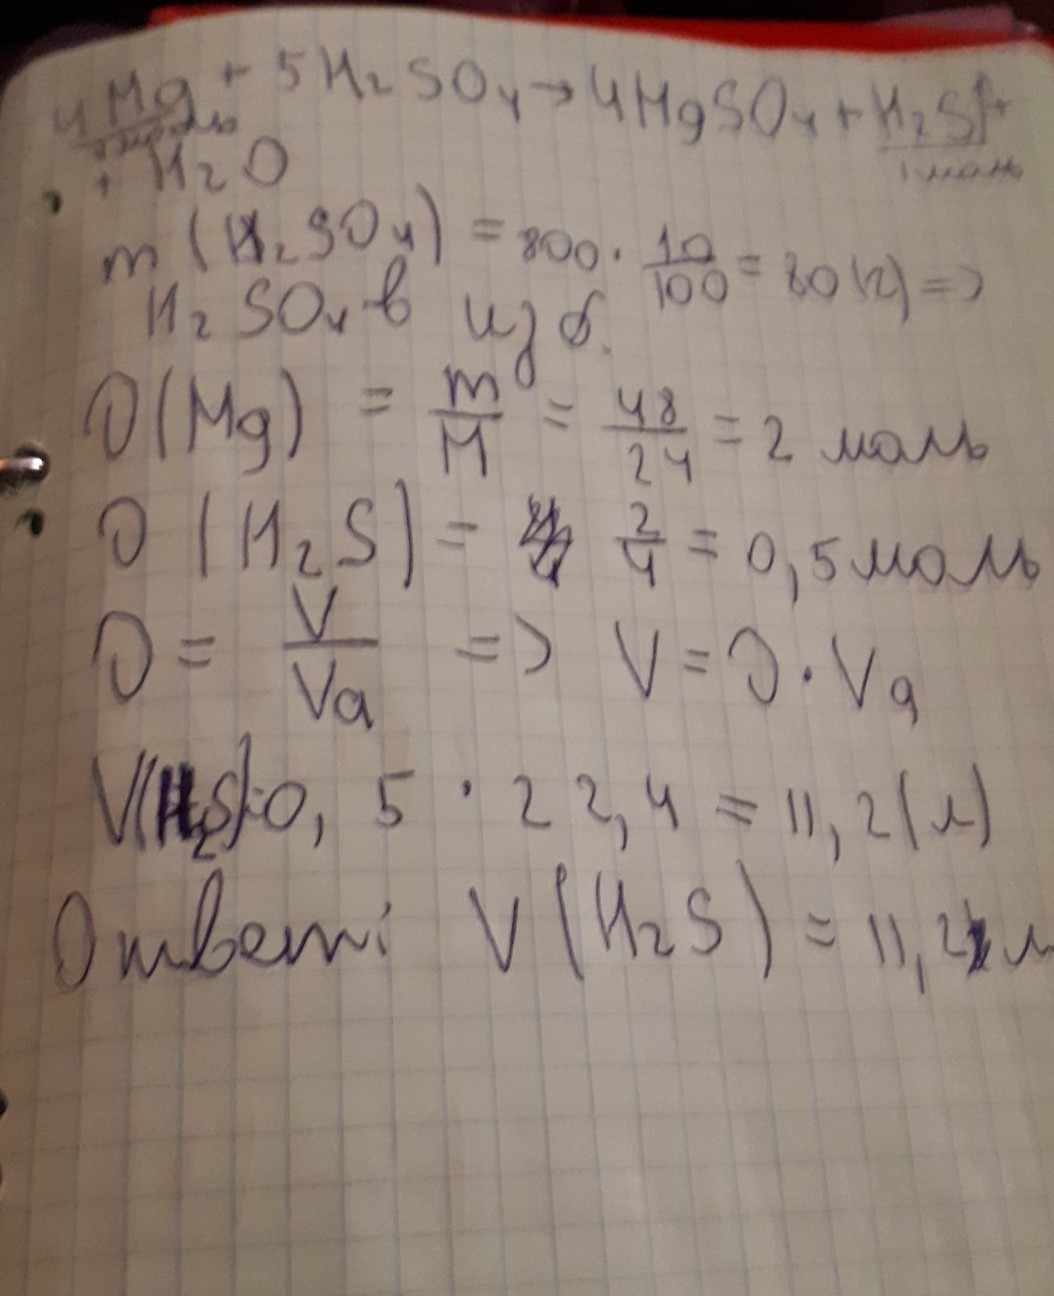 4Mg + 5H₂SO₄ → 4MgSO₄ + H₂S↑+
1 моль
+ H₂O
m (H₂SO₄) = 800 · 10/100 = 80(г) =>
H₂SO₄ в изб.
υ(Mg) = m/M = 48/24 = 2 моль
υ (H₂S) = 2/4 = 0,5 моль
υ = V/Va => V = υ · Va
V(H₂S)=0,5 · 22,4 = 11,2(л)
Ответ: V (H₂S) = 11,2 л